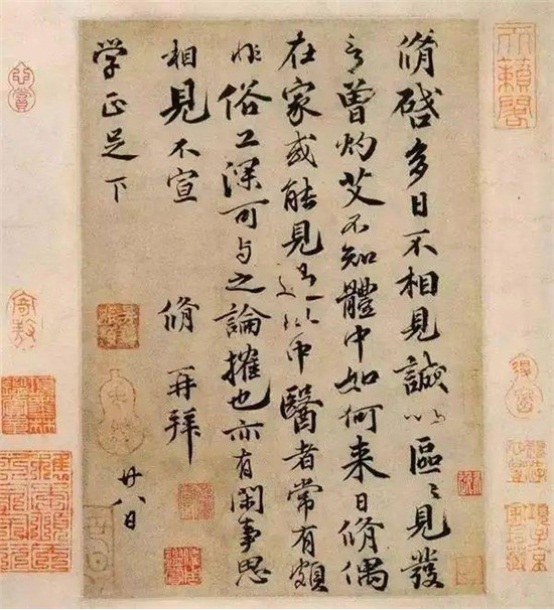 脩啓多日不相見誠以區〻見發
言曾灼艾不知體中如何来日脩偶
在家或能見過此中醫者常有頗
非俗工深可与之論搉也亦有閑事思
相見不宣 脩 再拜
学正足下 廿八日
天籟閣